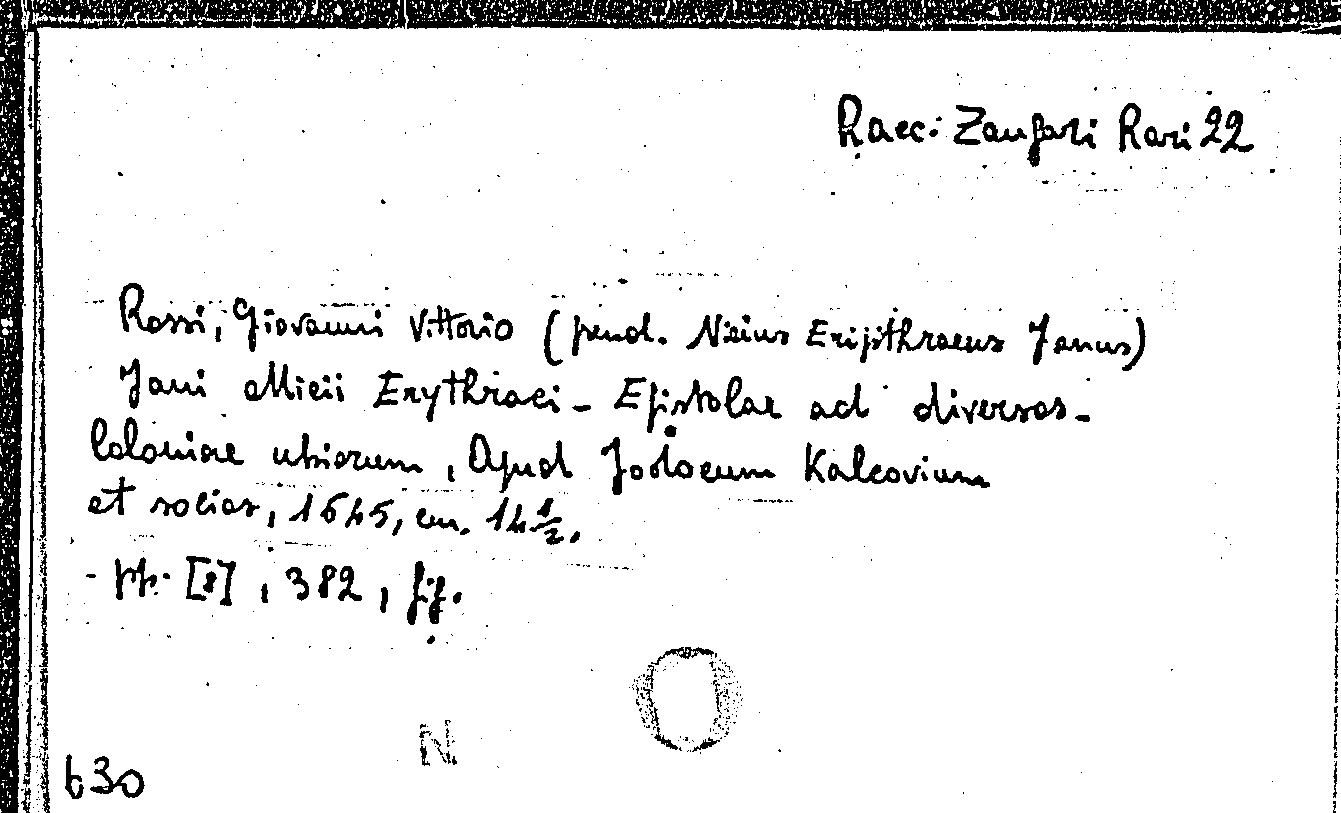 Racc. Zanfari Rari 22
Rossi, Giovanni Vittorio (pseud. Nicius Eripithraeus Janus)
Jani Nicii Erythraei - Epistolae ad diversos -
Coloniae ubiorum, Apud Jodocum Kalcovium
et socios, 1645, cm. 14 1/2.
- pp. [8], 382, fig.
N
630